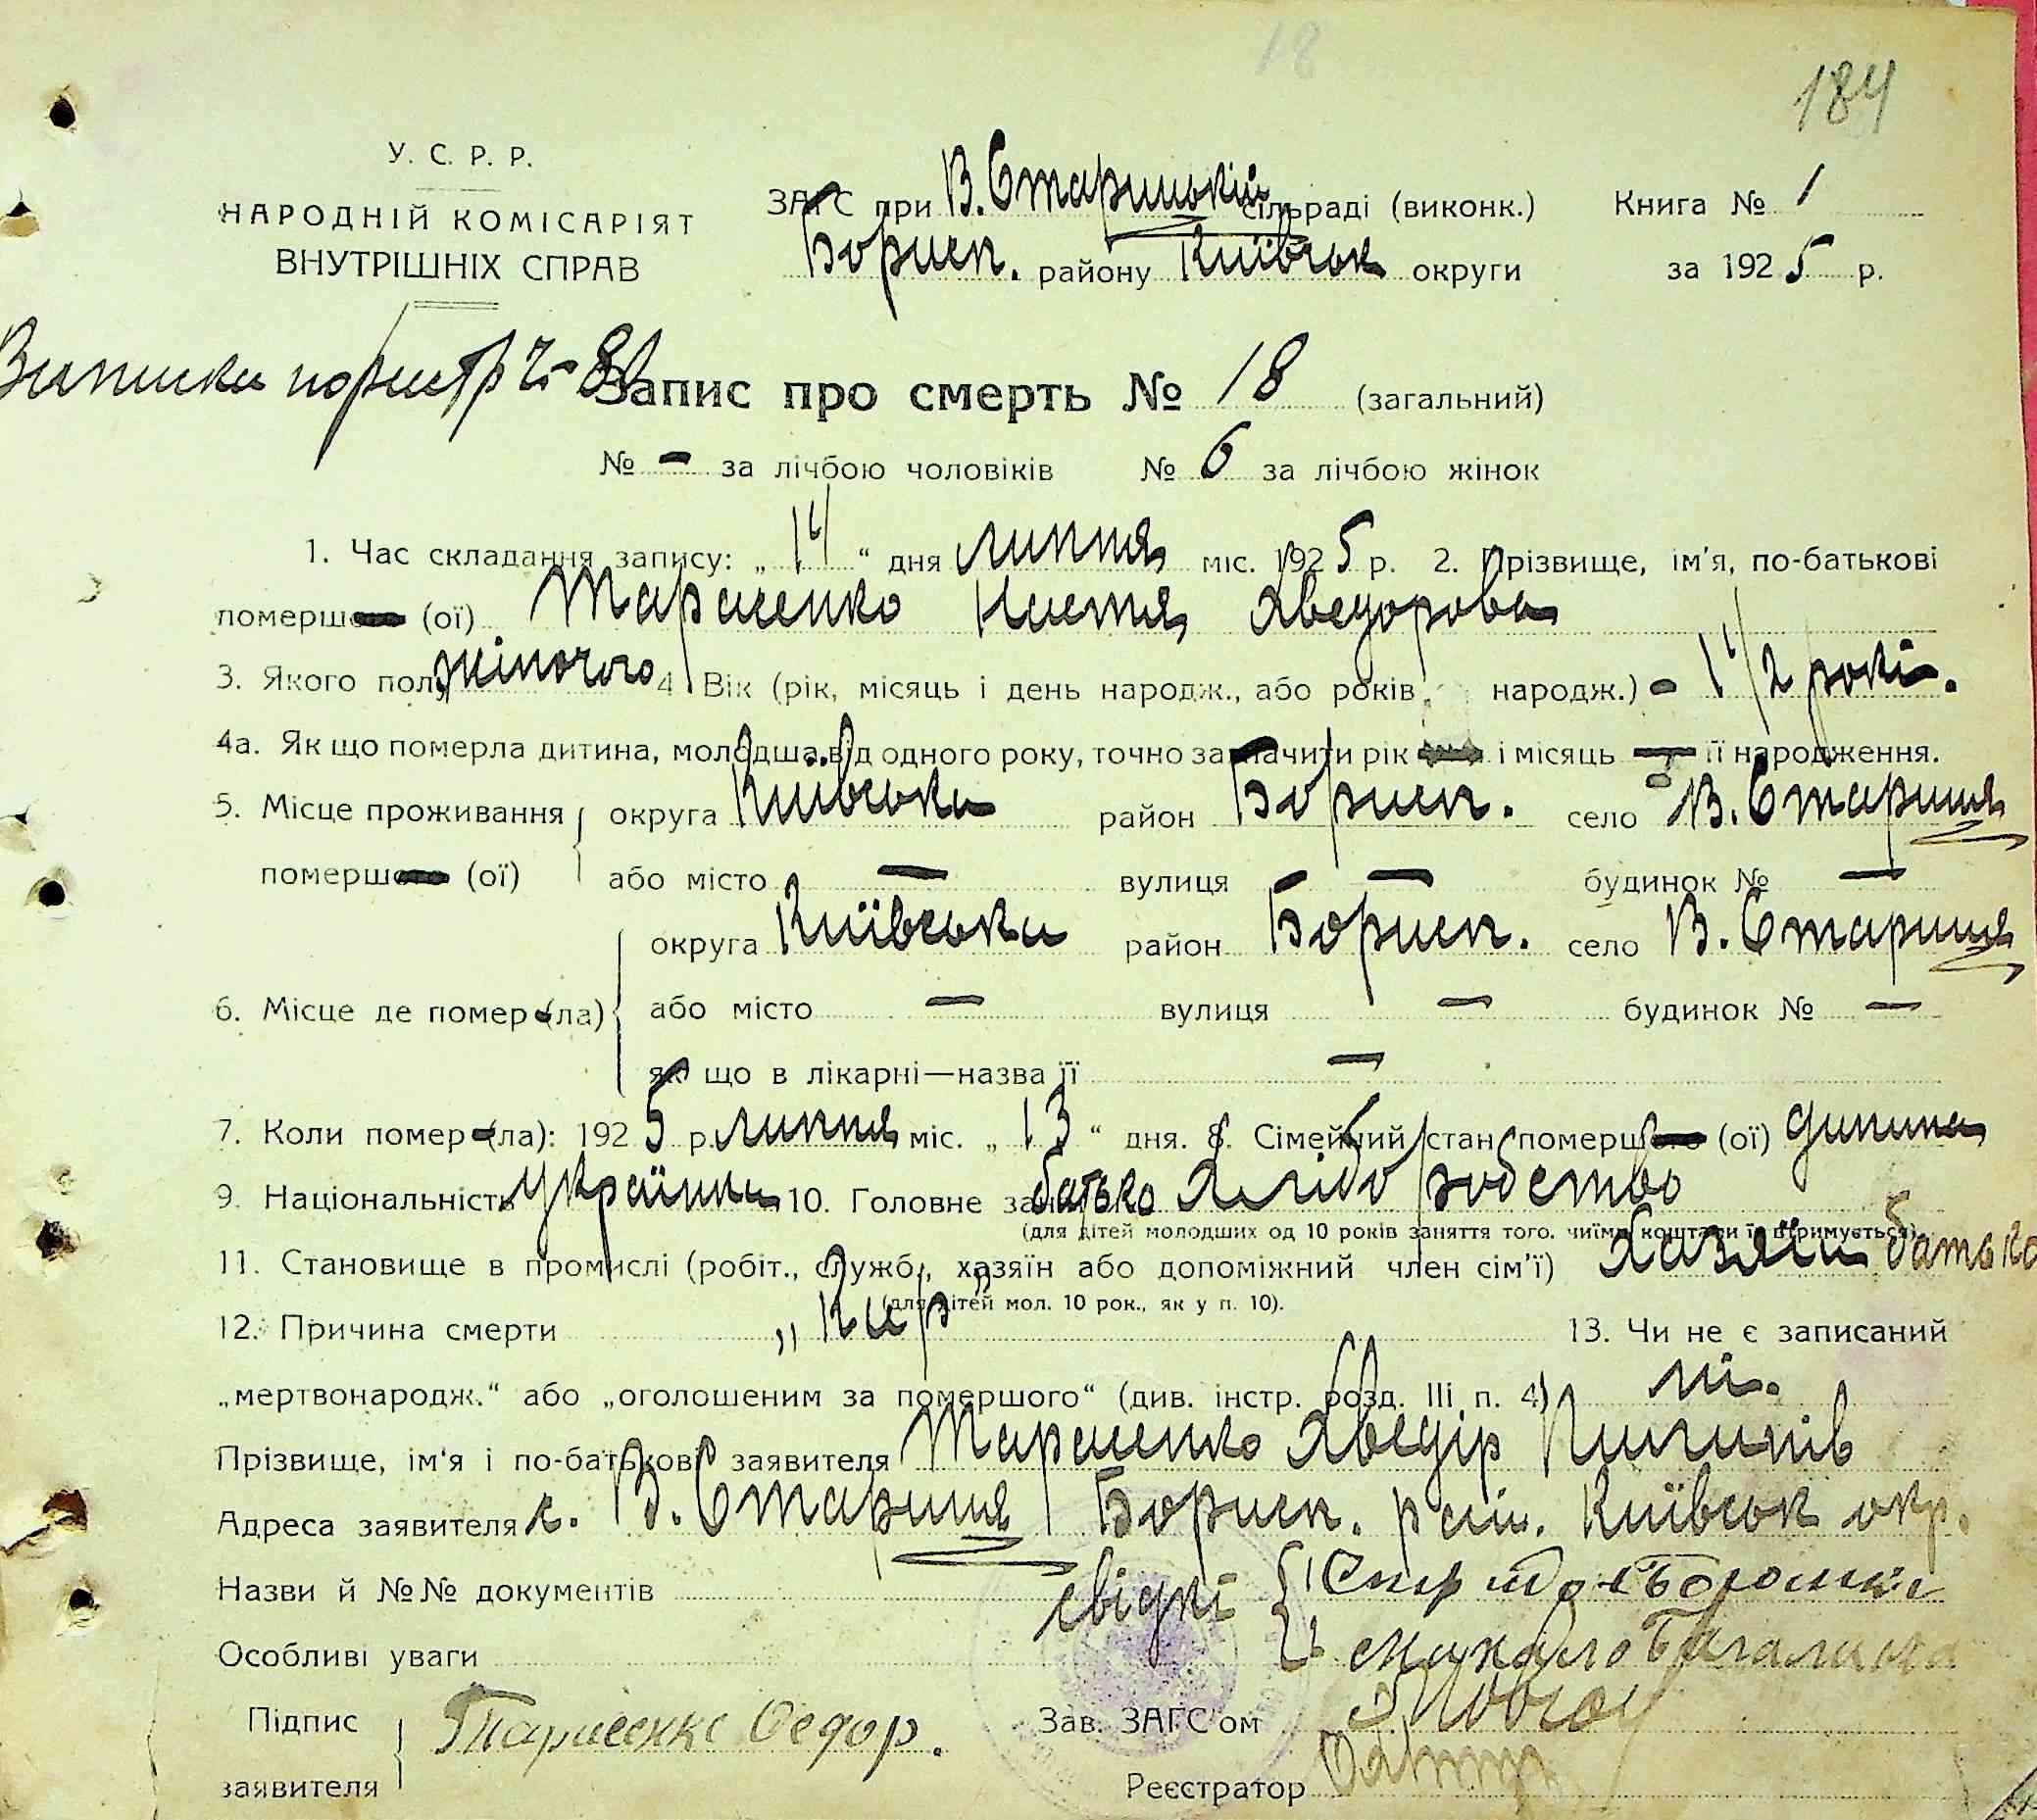 18
184
У. С. Р. Р.
НАРОДНІЙ КОМІСАРІЯТ
ВНУТРІШНІХ СПРАВ
ЗАГС при В. Старицькій сільраді (виконк.) Книга № 1
Борисп. району Київськ округи за 1925 р.
Запис про смерть № 18 (загальний)
№ – за лічбою чоловіків № 6 за лічбою жінок
1. Час складання запису: „ 14 “ дня липня міс. 1925 р. 2. Прізвище, ім'я, по-батькові
померш (ої) Тарасенко Настя Хведорова
3. Якого полу жіночого 4 Вік (рік, місяць і день народж., або років народж.) – 1 1/2 років.
4а. Як що померла дитина, молодша від одного року, точно зазначити рік і місяць її народження.
5. Місце проживання округа Київська район Борисп. село В. Стариця
померш (ої) або місто — вулиця — будинок № —
округа Київська район Борисп. село В. Стариця
6. Місце де помер (ла) або місто — вулиця — будинок № —
як що в лікарні—назва її —
7. Коли помер (ла): 1925 р. липня міс. „ 13 “ дня. 8. Сімейний стан померш (ої) дитина
9. Національність Українка 10. Головне заняття батько Хлібо робство
(для дітей молодших од 10 років заняття того, чиїми коштами їх втримується)
11. Становище в промислі (робіт., служб., хазяїн або допоміжний член сім'ї) хазяїн батько
(для дітей мол. 10 рок., як у п. 10).
12. Причина смерти „Кир” 13. Чи не є записаний
„мертвонародж.“ або „оголошеним за помершого“ (див. інстр. розд. III п. 4) ні.
Прізвище, ім'я і по-батькові заявителя Тарасенко Хведір
Адреса заявителя с. В. Стариця Борисп. рай. Київськ окр.
Назви й №№ документів свідкі
Особливі уваги Михайло
Підпис Тарасенко Федор. Зав. ЗАГС'ом
заявителя Реєстратор